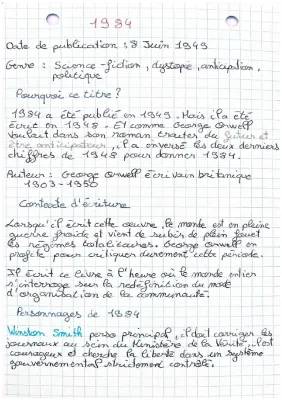 1984
Date de publication : 8 Juin 1949
Genre : Science-fiction, dystopie, anticipation,
politique
Pourquoi ce titre ?
1984 a été publié en 1949. Mais il a été
écrit en 1948. Et comme George Orwell
voulait dans son roman traiter du futur et
être anticipateur, il a inversé les deux derniers
chiffres de 1948 pour donner 1984.
Auteur : George Orwell écrivain britanique
1903-1950
Contexte d'écriture
Lorsqu'il écrit cette œuvre, le monde est en pleine
guerre froide et vient de subir de plein fouet
les régimes totalitaires. George Orwell en
profite pour critiquer durement cette période.
Il écrit ce livre à l'heure où le monde entier
s'interroge sur la redéfinition du mode
d'organisation de la communauté.
Personnages de 1984
Winston Smith perso principal, il doit corriger les
journaux au sein du Ministère de la Vérité, il est
courageux et cherche la liberté dans un système
gouvernemental strictement contrôlé.